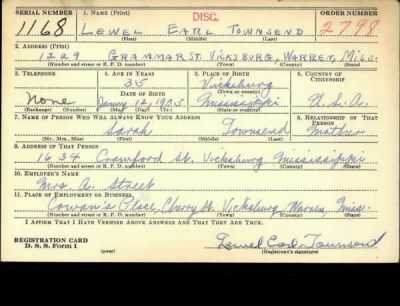 SERIAL NUMBER 1. NAME (Print) ORDER NUMBER
DISC.
1168 LEWEL EARL TOWNSEND 2798
(First) (Middle) (Last)
2. ADDRESS (Print)
1229 GRAMMAR ST. VICKSBURG, WARREN, MISS.
(Number and street or R. F. D. number) (Town) (County) (State)
3. TELEPHONE 4. AGE IN YEARS 5. PLACE OF BIRTH 6. COUNTRY OF CITIZENSHIP
35 Vicksburg
DATE OF BIRTH (Town or county)
None January 12, 1905 Mississippi U.S.A.
(Exchange) (Number) (Mo.) (Day) (Yr.) (State or country)
7. NAME OF PERSON WHO WILL ALWAYS KNOW YOUR ADDRESS 8. RELATIONSHIP OF THAT PERSON
Sarah Townsend Mother
(Mr., Mrs., Miss) (First) (Middle) (Last)
9. ADDRESS OF THAT PERSON
1634 Crawford St. Vicksburg, Mississippi
(Number and street or R. F. D. number) (Town) (County) (State)
10. EMPLOYER'S NAME
Mrs. A. Street
11. PLACE OF EMPLOYMENT OR BUSINESS
Cowan's Place, Cherry St. Vicksburg, Warren, Miss.
(Number and street or R. F. D. number) (Town) (County) (State)
I AFFIRM THAT I HAVE VERIFIED ABOVE ANSWERS AND THAT THEY ARE TRUE.
REGISTRATION CARD
D. S. S. Form 1 (over) Lewel Earl Townsend
(Registrant's signature)